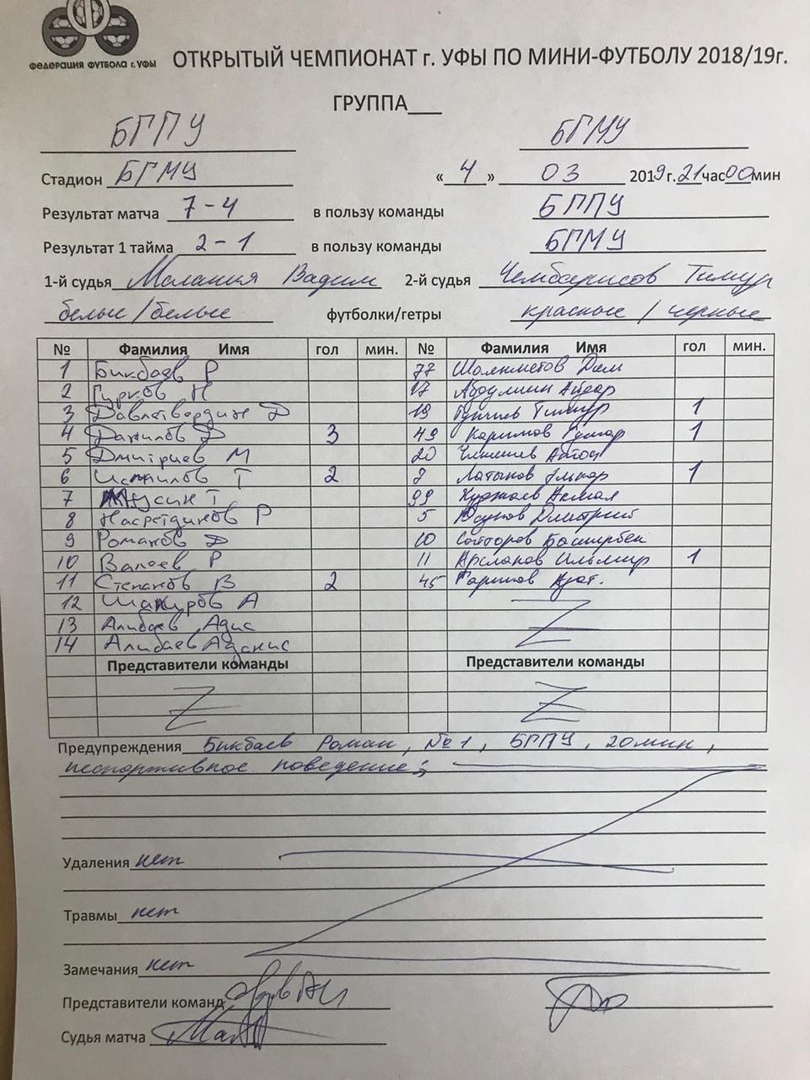 ФЕДЕРАЦИЯ ФУТБОЛА г. УФЫ
ОТКРЫТЫЙ ЧЕМПИОНАТ г. УФЫ ПО МИНИ-ФУТБОЛУ 2018/19г.
ГРУППА___
БГПУ БГМУ
Стадион БГМУ « 4 » 03 2019 г. 21 час 00 мин
Результат матча 7-4 в пользу команды БГПУ
Результат 1 тайма 2-1 в пользу команды БГМУ
1-й судья Вадим 2-й судья Тимур
белые/белые футболки/гетры красные/черные
№ Фамилия Имя гол мин. № Фамилия Имя гол мин.
1 Бикбаев Р 77
2 Гурков Н 17 Айдар
3 Давлетбердин Д 19 Тимур 1
4 Данилов Д 3 49 Каримов 1
5 Дмитриев М 20
6 Т 2 1
7 Мусин Т 99
8 Насретдинов Р 5 Дмитрий
9 Романов Д 10
10 Валеев Р 11 Арсланов Ильмир 1
11 Степанов В 2 45 Гарипов Азат.
12 Шакуров А
13 Алибаев Адис
14 Алибаев
Представители команды Представители команды
Предупреждения Бикбаев Роман, №1, БГПУ, 20мин,
неспортивное поведение;
Удаления нет
Травмы нет
Замечания нет
Представители команд
Судья матча